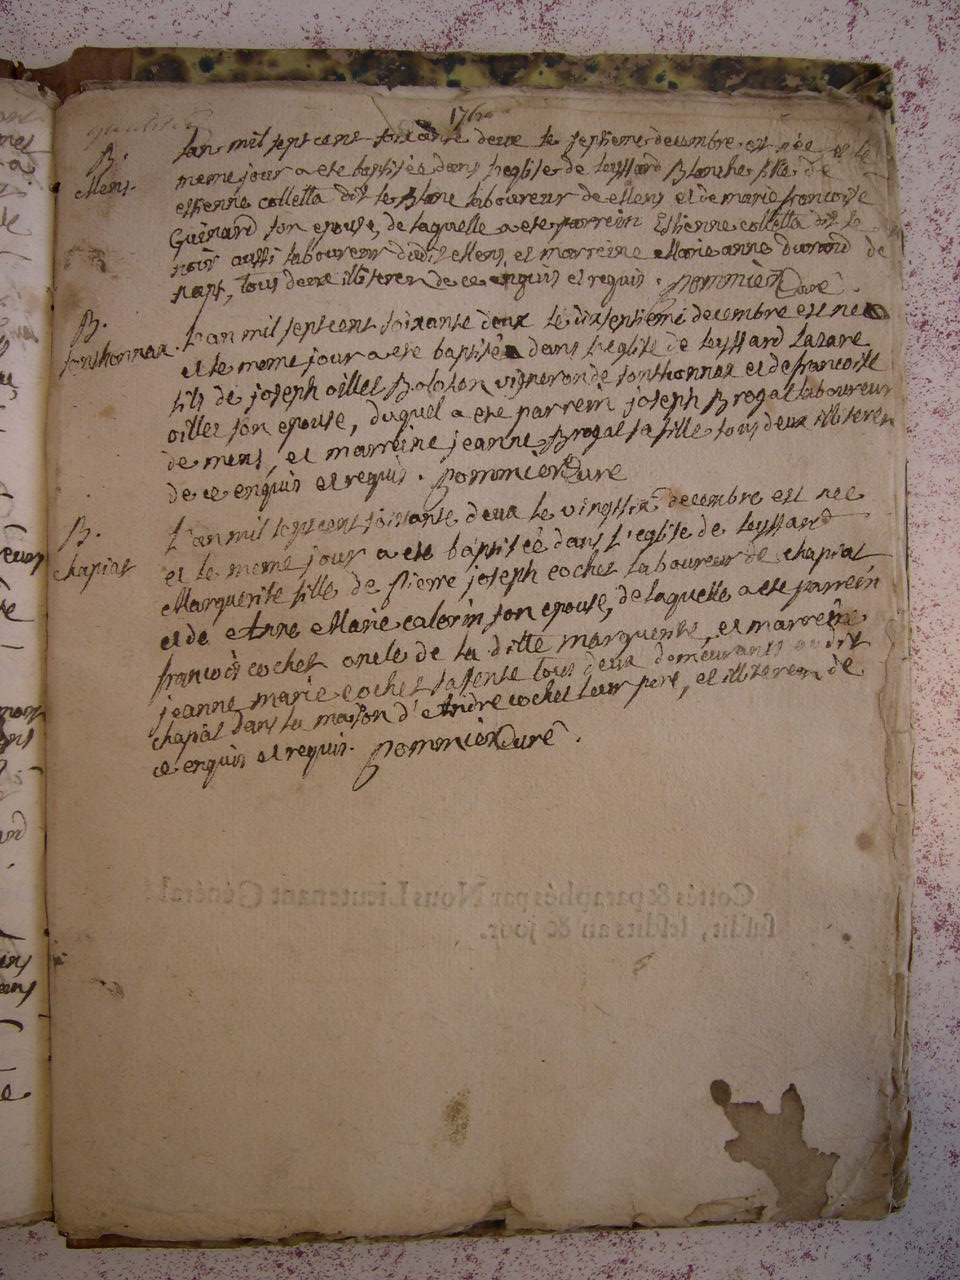 1762
B.
Mens.
Lan mil sept cent soixante deux le septieme decembre est née et le
meme jour a eté baptisée dans l'eglise de leyssard Blanche fille de
estienne colletta dit le Blanc laboureur de Mens et de marie francoise
Guinard son epouse, de laquelle a eté parrein Estienne colletta dit le
noir aussi laboureur dudit Mens, et marreine Marie anne durand de
napt, tous deux illiterez de ce enquis et requis. pommier Curé.
B.
sonthonnax.
L'an mil sept cent soixante deux le dixseptieme decembre est né
et le meme jour a eté baptisé dans l'eglise de leyssard Lazare
fils de joseph oillet Boloton vigneron de sonthonnax et de francoise
oillet son epouse, duquel a eté parrein joseph Brogat laboureur
de mens, et marreine jeanne Brogat sa fille tous deux illiterez
de ce enquis et requis. pommier Curé
B.
chapiat
L'an mil sept cent soixante deux le vingt six decembre est née
et le meme jour a eté baptisée dans l'eglise de leyssard
Marguerite fille de pierre joseph cochet laboureur de chapiat
et de Anne Marie calorin son epouse, de laquelle a eté parrein
francois cochet oncle de la ditte marguerite, et marreine
jeanne marie cochet sa tente tous deux demeurants audit
chapiat dans la maison d'Andre cochet leur pere, et illiterez de
ce enquis et requis. pommier Curé.
Cottés & paraphés par Nous Lieutenant Général
susdit, lesdits an & jour.